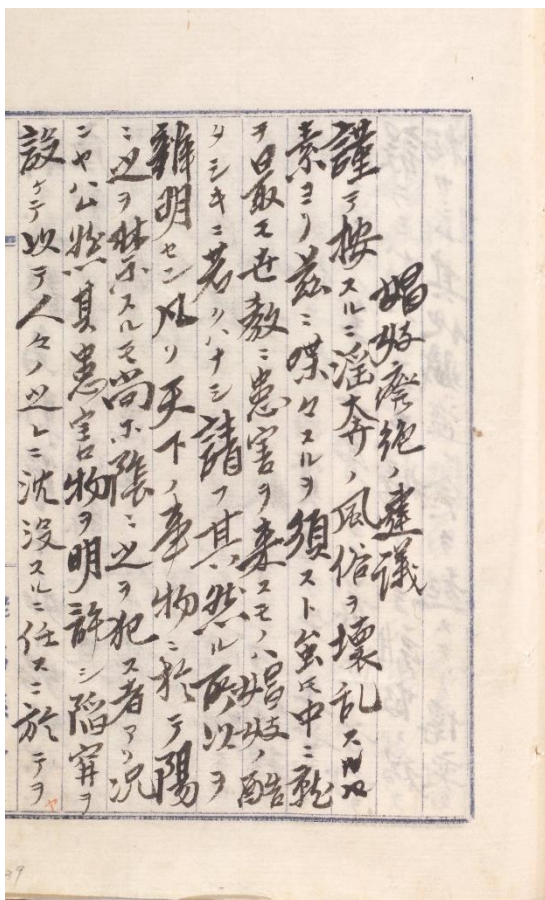 娼妓廃絶ノ建議
謹テ按スルニ淫奔ノ風俗ヲ壊乱スルハ
素ヨリ茲ニ喋々スルヲ須スト雖モ中ニ就
テ最モ世教ニ患害ヲ来スモノハ娼妓ノ酷
タシキニ若クハナシ請フ其然ル所以ヲ
辨明セン凡ソ天下ノ事物ニ於テ陽
ニ之ヲ禁スルモ尚ホ陰ニ之ヲ犯ス者アリ況
ンヤ公然其患害物ヲ明許シ陥穽ヲ
設ケテ以テ人々ノ之レニ沈没スルニ任スニ於テヲ
ヤ